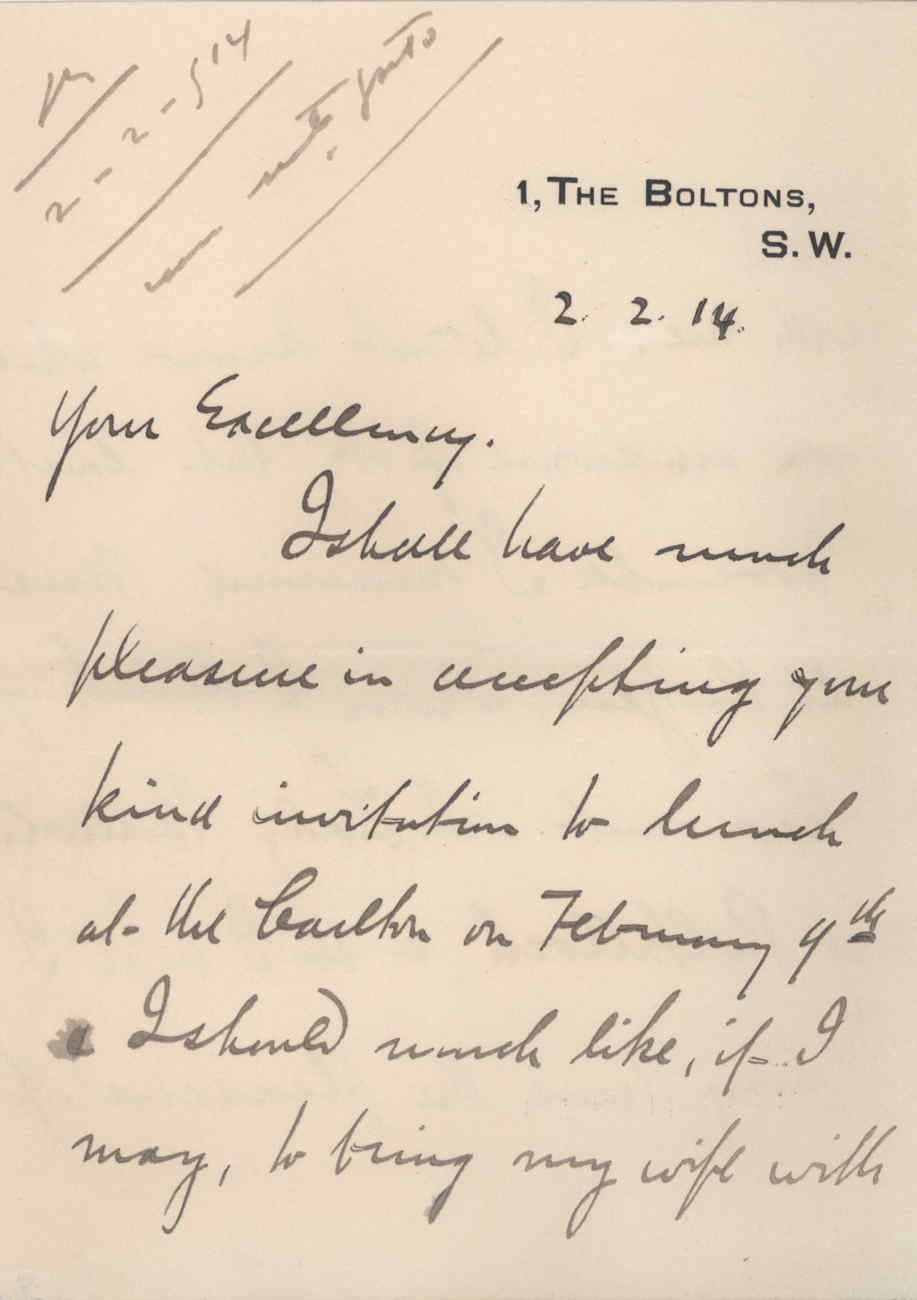 2-2-914
1, THE BOLTONS,
S. W.
2. 2. 14.
Your Excellency.
I shall have much
pleasure in accepting your
kind invitation to lunch
at the Carlton on February 9th
& I should much like, if I
may, to bring my wife with